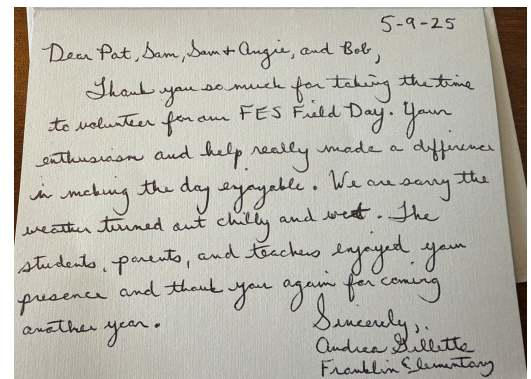 5-9-25
Dear Pat, Sam, Sam + Angie, and Bob,
Thank you so much for taking the time
to volunteer for our FES Field Day. Your
enthusiasm and help really made a difference
in making the day enjoyable. We are sorry the
weather turned out chilly and wet. The
students, parents, and teachers enjoyed your
presence and thank you again for coming
another year.
Sincerely,
Andrea Gillette
Franklin Elementary